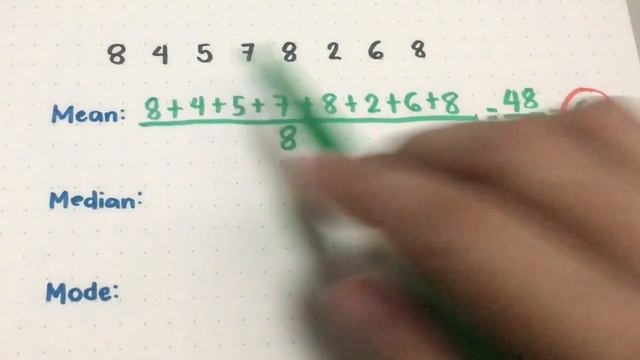 8 4 5 7 8 2 6 8
Mean: 8+4+5+7+8+2+6+8 = 48
8
Median:
Mode: